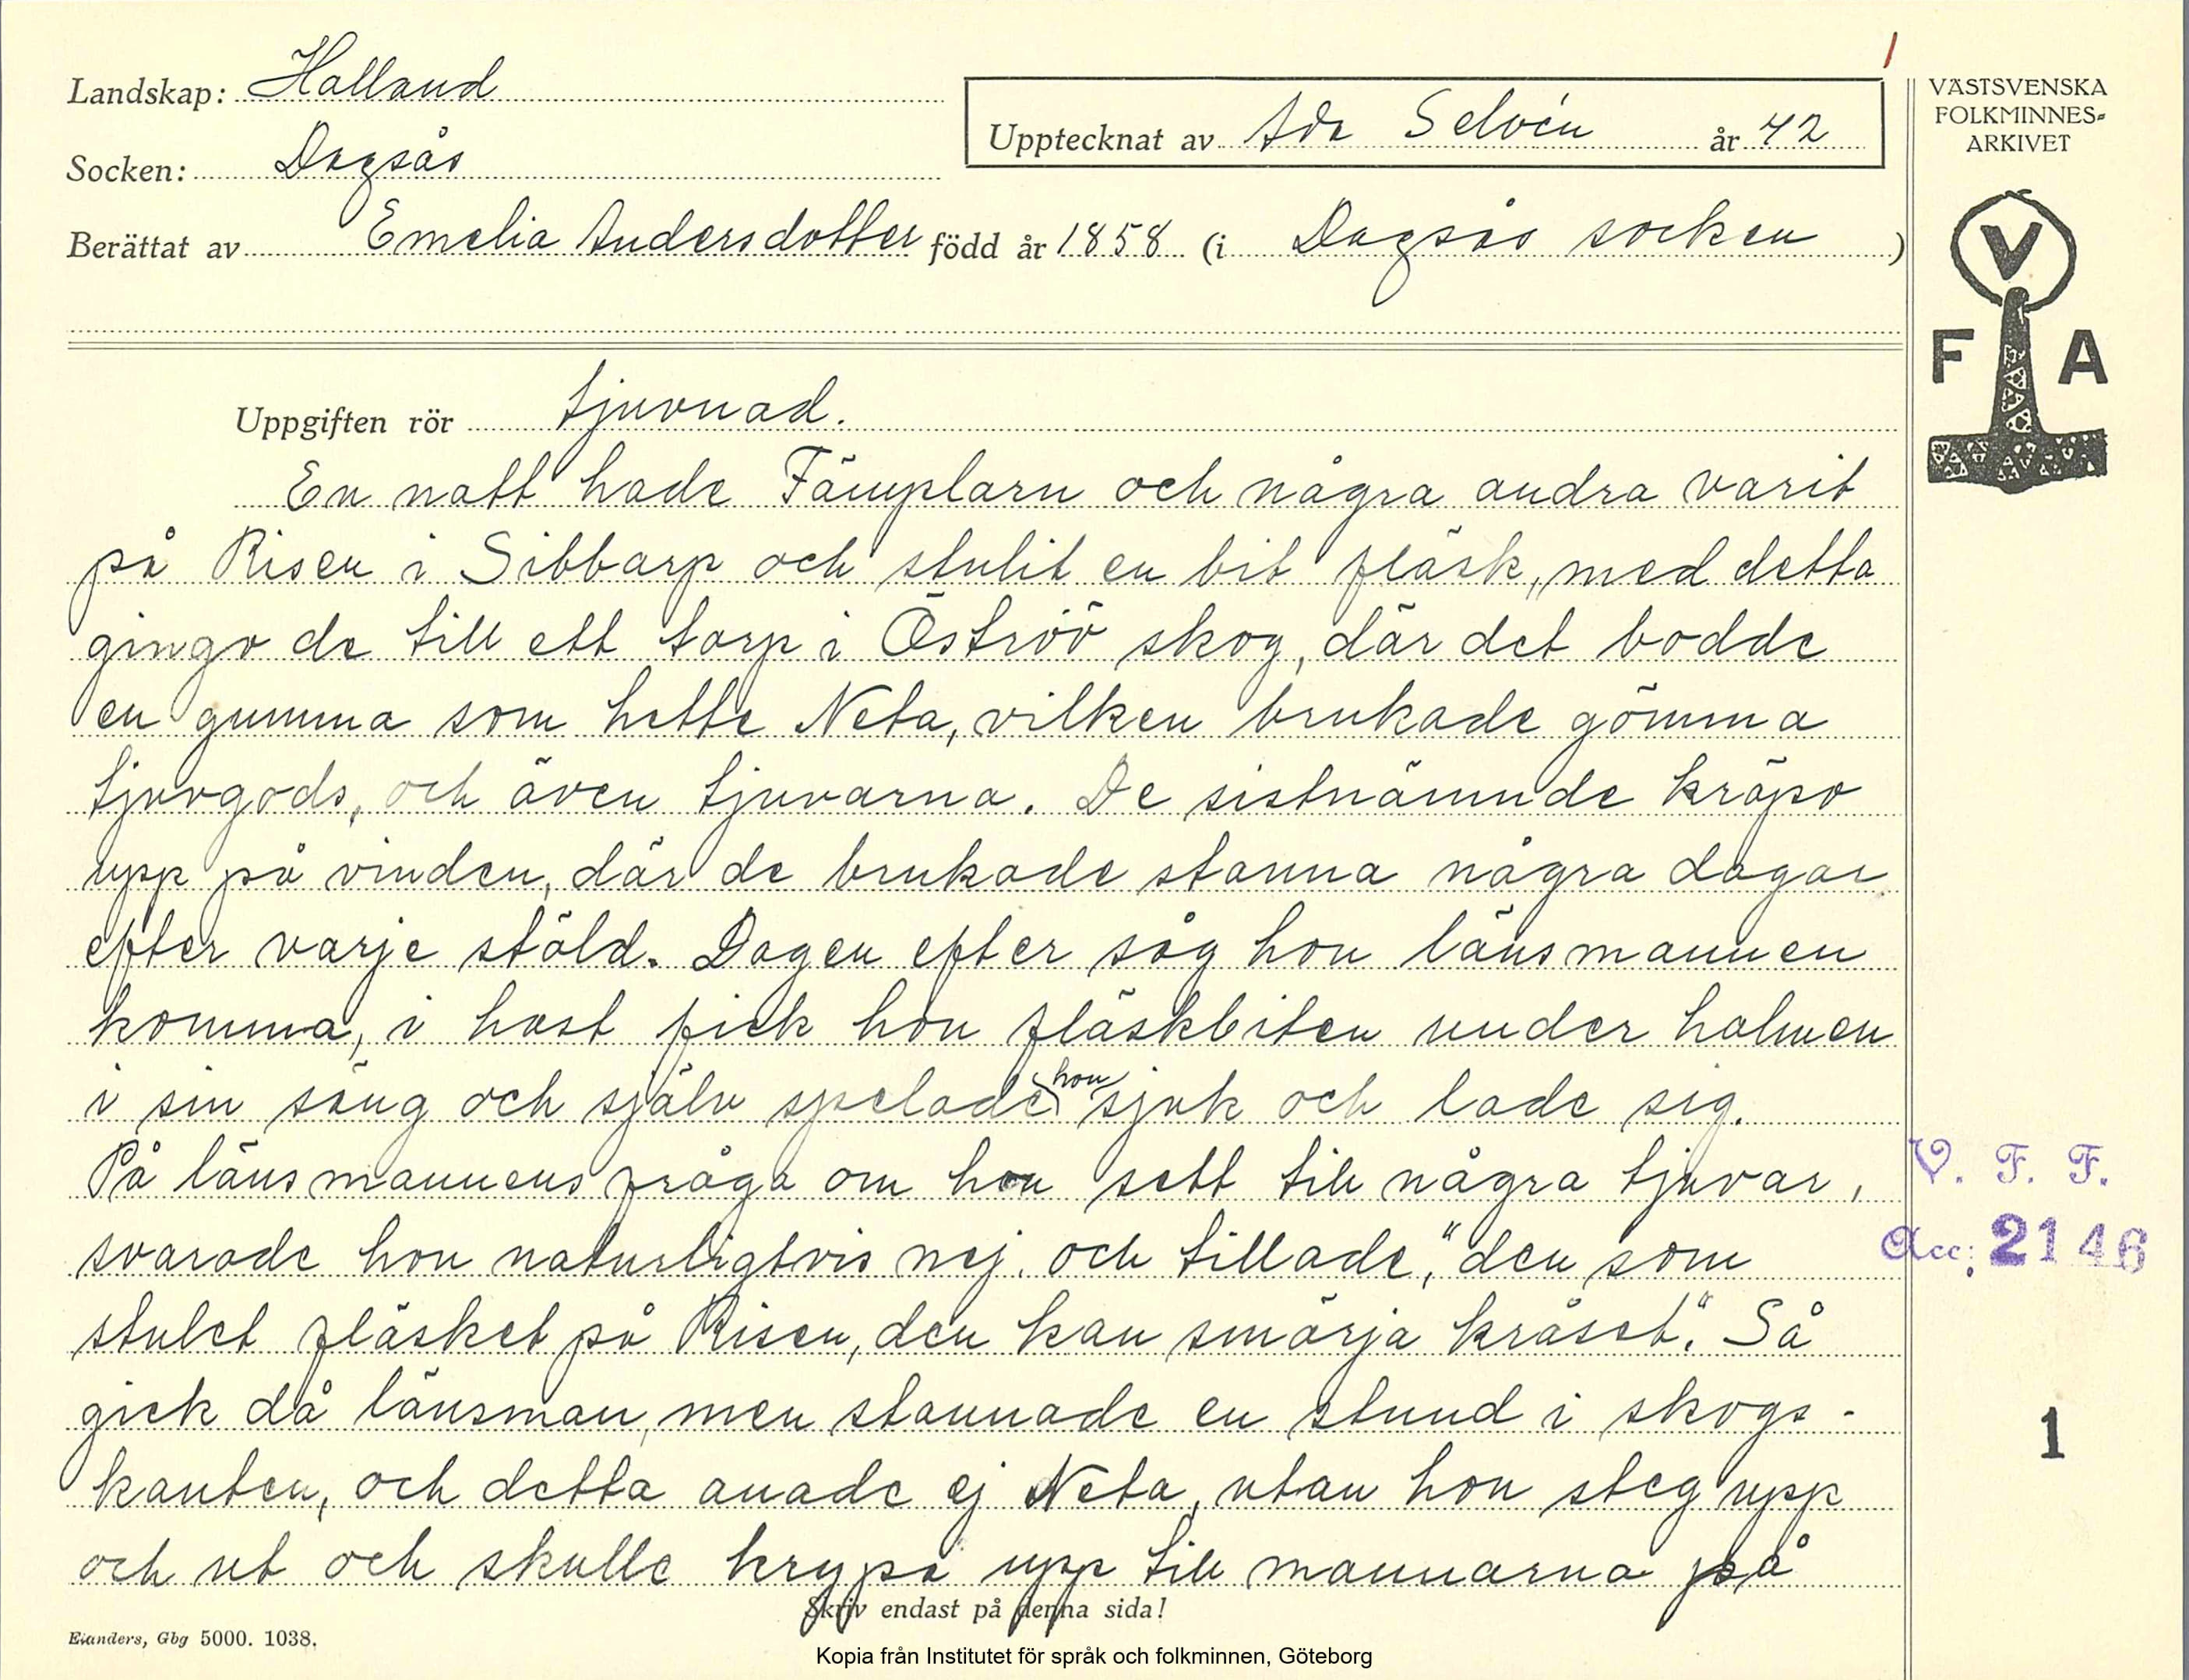 Landskap: Halland
Socken: Dagsås
Upptecknat av Ada Selvén år 42
Berättat av Emelia Andersdotter född år 1858 (i Dagsås socken )
VÄSTSVENSKA
FOLKMINNES=
ARKIVET
V
F A
Uppgiften rör tjuvnad.
En natt hade Fämplarn och några andra varit
på Risen i Sibbarp och stulit en bit fläsk, med detta
gingo de till ett torp i Öströö skog, där det bodde
en gumma som hette Neta, vilken brukade gömma
tjuvgods, och även tjuvarna. De sistnämnde kröpo
upp på vinden, där de brukade stanna några dagar
efter varje stöld. Dagen efter såg hon länsmannen
komma, i hast fick hon fläskbiten under halmen
i sin säng och själv spelade hon sjuk och lade sig.
På länsmannens fråga om hon sett till några tjuvar,
svarade hon naturligtvis nej, och tillade, "den som
stulet fläsket på Risen, den kan smörja kråset." Så
gick då länsman, men stannade en stund i skogs-
kanten, och detta anade ej Neta, utan hon steg upp
och ut och skulle krypa upp till mannarna på
V. F. F.
Acc: 2146
1
Skriv endast på denna sida!
Elanders, Gbg 5000. 1038.
Kopia från Institutet för språk och folkminnen, Göteborg